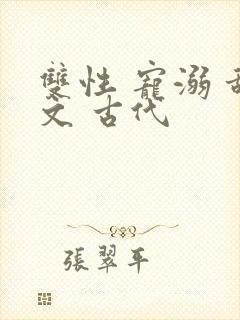 雙性 寵溺
文 古代
張翠平